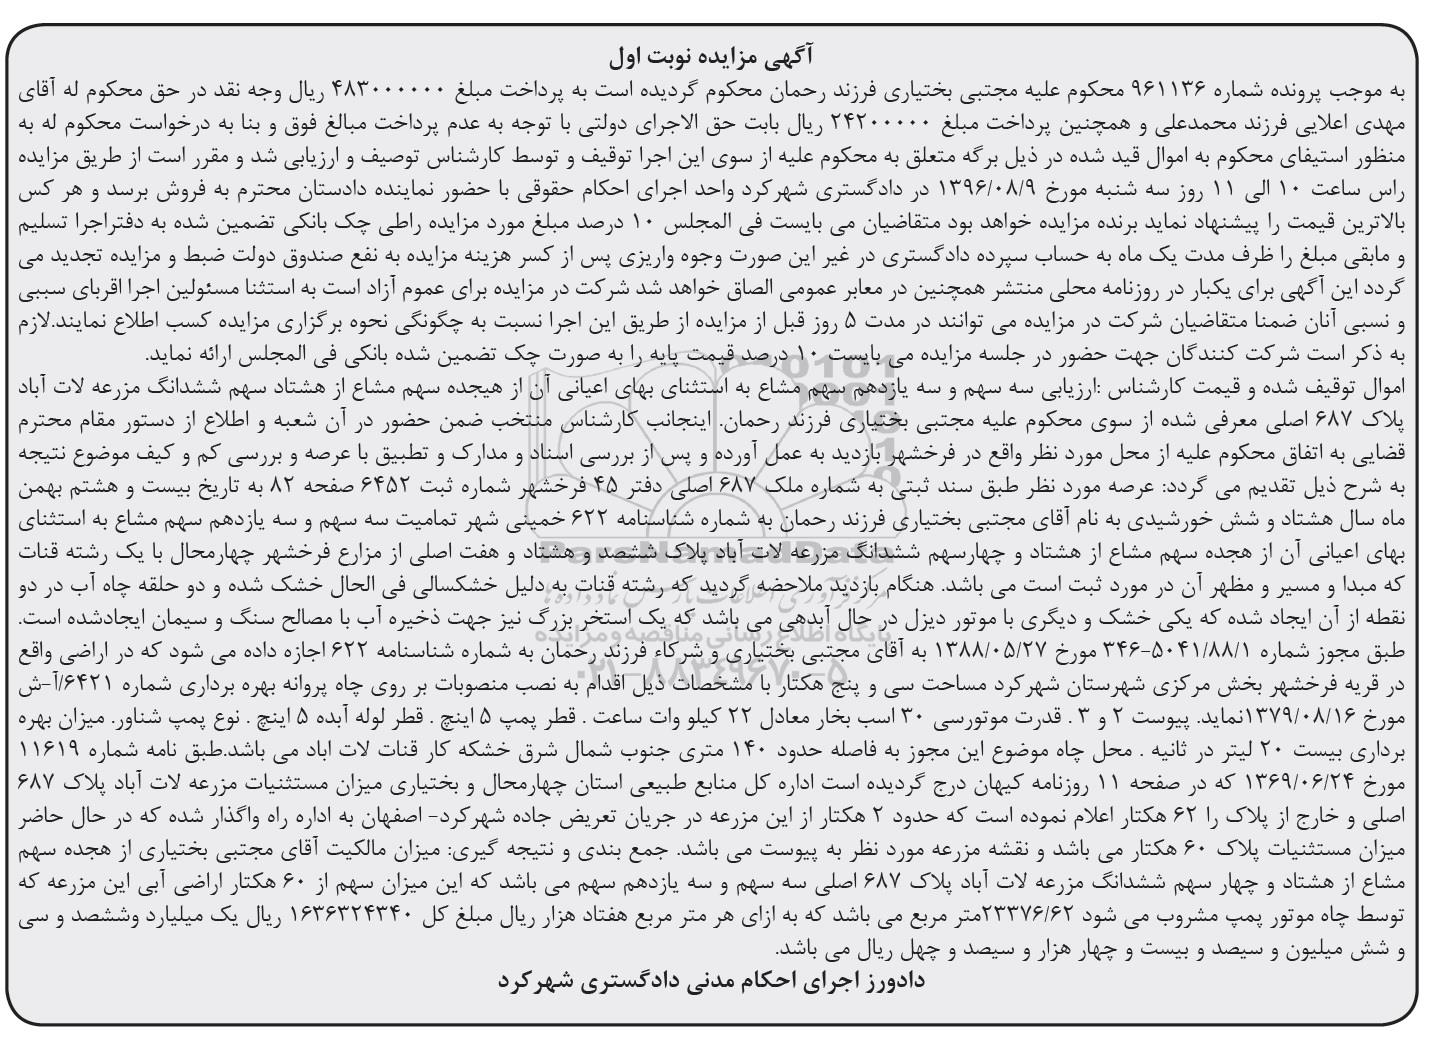 آگهی مزایده نوبت اول
به موجب پرونده شماره ۹۶۱۱۳۶ محکوم علیه مجتبی بختیاری فرزند رحمان محکوم گردیده است به پرداخت مبلغ ۴۸۳۰۰۰۰۰۰ ریال وجه نقد در حق محکوم له آقای
مهدی اعلایی فرزند محمدعلی و همچنین پرداخت مبلغ ۲۴۲۰۰۰۰۰ ریال بابت حق الاجرای دولتی با توجه به عدم پرداخت مبالغ فوق و بنا به درخواست محکوم له به
منظور استیفای محکوم به اموال قید شده در ذیل برگه متعلق به محکوم علیه از سوی این اجرا توقیف و توسط کارشناس توصیف و ارزیابی شد و مقرر است از طریق مزایده
راس ساعت ۱۰ الی ۱۱ روز سه شنبه مورخ ۱۳۹۶/۰۸/۹ در دادگستری شهرکرد واحد اجرای احکام حقوقی با حضور نماینده دادستان محترم به فروش برسد و هر کس
بالاترین قیمت را پیشنهاد نماید برنده مزایده خواهد بود متقاضیان می بایست فی المجلس ۱۰ درصد مبلغ مورد مزایده راطی چک بانکی تضمین شده به دفتراجرا تسلیم
و مابقی مبلغ را ظرف مدت یک ماه به حساب سپرده دادگستری در غیر این صورت وجوه واریزی پس از کسر هزینه مزایده به نفع صندوق دولت ضبط و مزایده تجدید می
گردد این آگهی برای یکبار در روزنامه محلی منتشر همچنین در معابر عمومی الصاق خواهد شد شرکت در مزایده برای عموم آزاد است به استثنا مسئولین اجرا اقربای سببی
و نسبی آنان ضمنا متقاضیان شرکت در مزایده می توانند در مدت ۵ روز قبل از مزایده از طریق این اجرا نسبت به چگونگی نحوه برگزاری مزایده کسب اطلاع نمایند.لازم
به ذکر است شرکت کنندگان جهت حضور در جلسه مزایده می بایست ۱۰ درصد قیمت پایه را به صورت چک تضمین شده بانکی فی المجلس ارائه نماید.
اموال توقیف شده و قیمت کارشناس :ارزیابی سه سهم و سه یازدهم سهم مشاع به استثنای بهای اعیانی آن از هیجده سهم مشاع از هشتاد سهم ششدانگ مزرعه لات آباد
پلاک ۶۸۷ اصلی معرفی شده از سوی محکوم علیه مجتبی بختیاری فرزند رحمان. اینجانب کارشناس منتخب ضمن حضور در آن شعبه و اطلاع از دستور مقام محترم
قضایی به اتفاق محکوم علیه از محل مورد نظر واقع در فرخشهر بازدید به عمل آورده و پس از بررسی اسناد و مدارک و تطبیق با عرصه و بررسی کم و کیف موضوع نتیجه
به شرح ذیل تقدیم می گردد: عرصه مورد نظر طبق سند ثبتی به شماره ملک ۶۸۷ اصلی دفتر ۴۵ فرخشهر شماره ثبت ۶۴۵۲ صفحه ۸۲ به تاریخ بیست و هشتم بهمن
ماه سال هشتاد و شش خورشیدی به نام آقای مجتبی بختیاری فرزند رحمان به شماره شناسنامه ۶۲۲ خمینی شهر تمامیت سه سهم و سه یازدهم سهم مشاع به استثنای
بهای اعیانی آن از هجده سهم مشاع از هشتاد و چهارسهم ششدانگ مزرعه لات آباد پلاک ششصد و هشتاد و هفت اصلی از مزارع فرخشهر چهارمحال با یک رشته قنات
که مبدا و مسیر و مظهر آن در مورد ثبت است می باشد. هنگام بازدید ملاحضه گردید که رشته قنات به دلیل خشکسالی فی الحال خشک شده و دو حلقه چاه آب در دو
نقطه از آن ایجاد شده که یکی خشک و دیگری با موتور دیزل در حال آبدهی می باشد که یک استخر بزرگ نیز جهت ذخیره آب با مصالح سنگ و سیمان ایجادشده است.
طبق مجوز شماره ۳۴۶-۵۰۴۱/۸۸/۱ مورخ ۱۳۸۸/۰۵/۲۷ به آقای مجتبی بختیاری و شرکاء فرزند رحمان به شماره شناسنامه ۶۲۲ اجازه داده می شود که در اراضی واقع
در قریه فرخشهر بخش مرکزی شهرستان شهرکرد مساحت سی و پنج هکتار با مشخصات ذیل اقدام به نصب منصوبات بر روی چاه پروانه بهره برداری شماره ۶۴۲۱/آ-ش
مورخ ۱۳۷۹/۰۸/۱۶نماید. پیوست ۲ و ۳ . قدرت موتورسی ۳۰ اسب بخار معادل ۲۲ کیلو وات ساعت . قطر پمپ ۵ اینچ . قطر لوله آبده ۵ اینچ . نوع پمپ شناور. میزان بهره
برداری بیست ۲۰ لیتر در ثانیه . محل چاه موضوع این مجوز به فاصله حدود ۱۴۰ متری جنوب شمال شرق خشکه کار قنات لات اباد می باشد.طبق نامه شماره ۱۱۶۱۹
مورخ ۱۳۶۹/۰۶/۲۴ که در صفحه ۱۱ روزنامه کیهان درج گردیده است اداره کل منابع طبیعی استان چهارمحال و بختیاری میزان مستثنیات مزرعه لات آباد پلاک ۶۸۷
اصلی و خارج از پلاک را ۶۲ هکتار اعلام نموده است که حدود ۲ هکتار از این مزرعه در جریان تعریض جاده شهرکرد- اصفهان به اداره راه واگذار شده که در حال حاضر
میزان مستثنیات پلاک ۶۰ هکتار می باشد و نقشه مزرعه مورد نظر به پیوست می باشد. جمع بندی و نتیجه گیری: میزان مالکیت آقای مجتبی بختیاری از هجده سهم
مشاع از هشتاد و چهار سهم ششدانگ مزرعه لات آباد پلاک ۶۸۷ اصلی سه سهم و سه یازدهم سهم می باشد که این میزان سهم از ۶۰ هکتار اراضی آبی این مزرعه که
توسط چاه موتور پمپ مشروب می شود ۲۳۳۷۶/۶۲متر مربع می باشد که به ازای هر متر مربع هفتاد هزار ریال مبلغ کل ۱۶۳۶۳۲۴۳۴۰ ریال یک میلیارد وششصد و سی
و شش میلیون و سیصد و بیست و چهار هزار و سیصد و چهل ریال می باشد.
دادورز اجرای احکام مدنی دادگستری شهرکرد
ParsNamadData
پایگاه اطلاع رسانی مناقصه و مزایده
۰۲۱-۸۸۳۴۹۶۷۰-۵